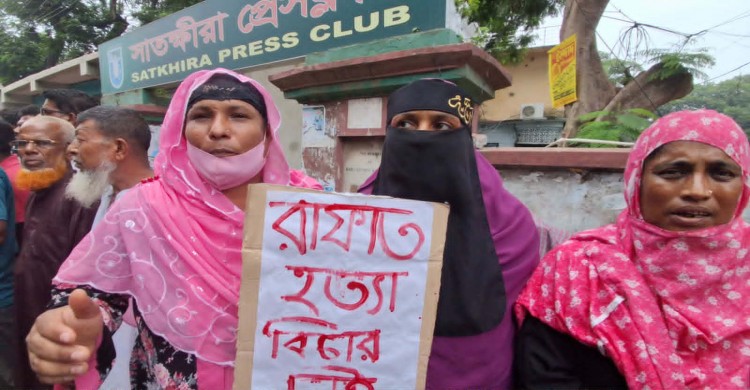 সাতক্ষীরা প্রেসক্লাব
SATKHIRA PRESS CLUB
রাফাত
হত্যা
বিচার
চাই